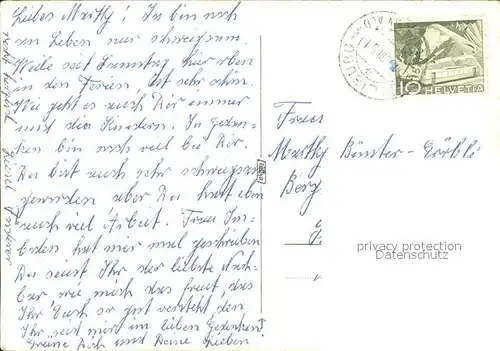 Liebes Marthy! Du bin noch
am Leben nur schweysam
Weile seit Samstag hier oben
in den Ferien, ist sehr schön.
Wie geht es auch Dir immer
mit den Kindern. In Gedan-
ken bin noch viel bei Dir.
Du bist auch sehr schweigsam
geworden aber Du hast eben
auch viel Arbeit. Frau Im-
boden hat mir mal geschrieben
Du seiest Ihr der liebste Nach-
bar wie mich das freut, das
Ihr Euch so gut versteht, den
Ihr seid mir im lieben Gedenken.
Grüsse Dich und Deine Lieben
recht herzlich
Frau
Marthy Bünter-
Berg
10
HELVETIA
privacy protection
Datenschutz